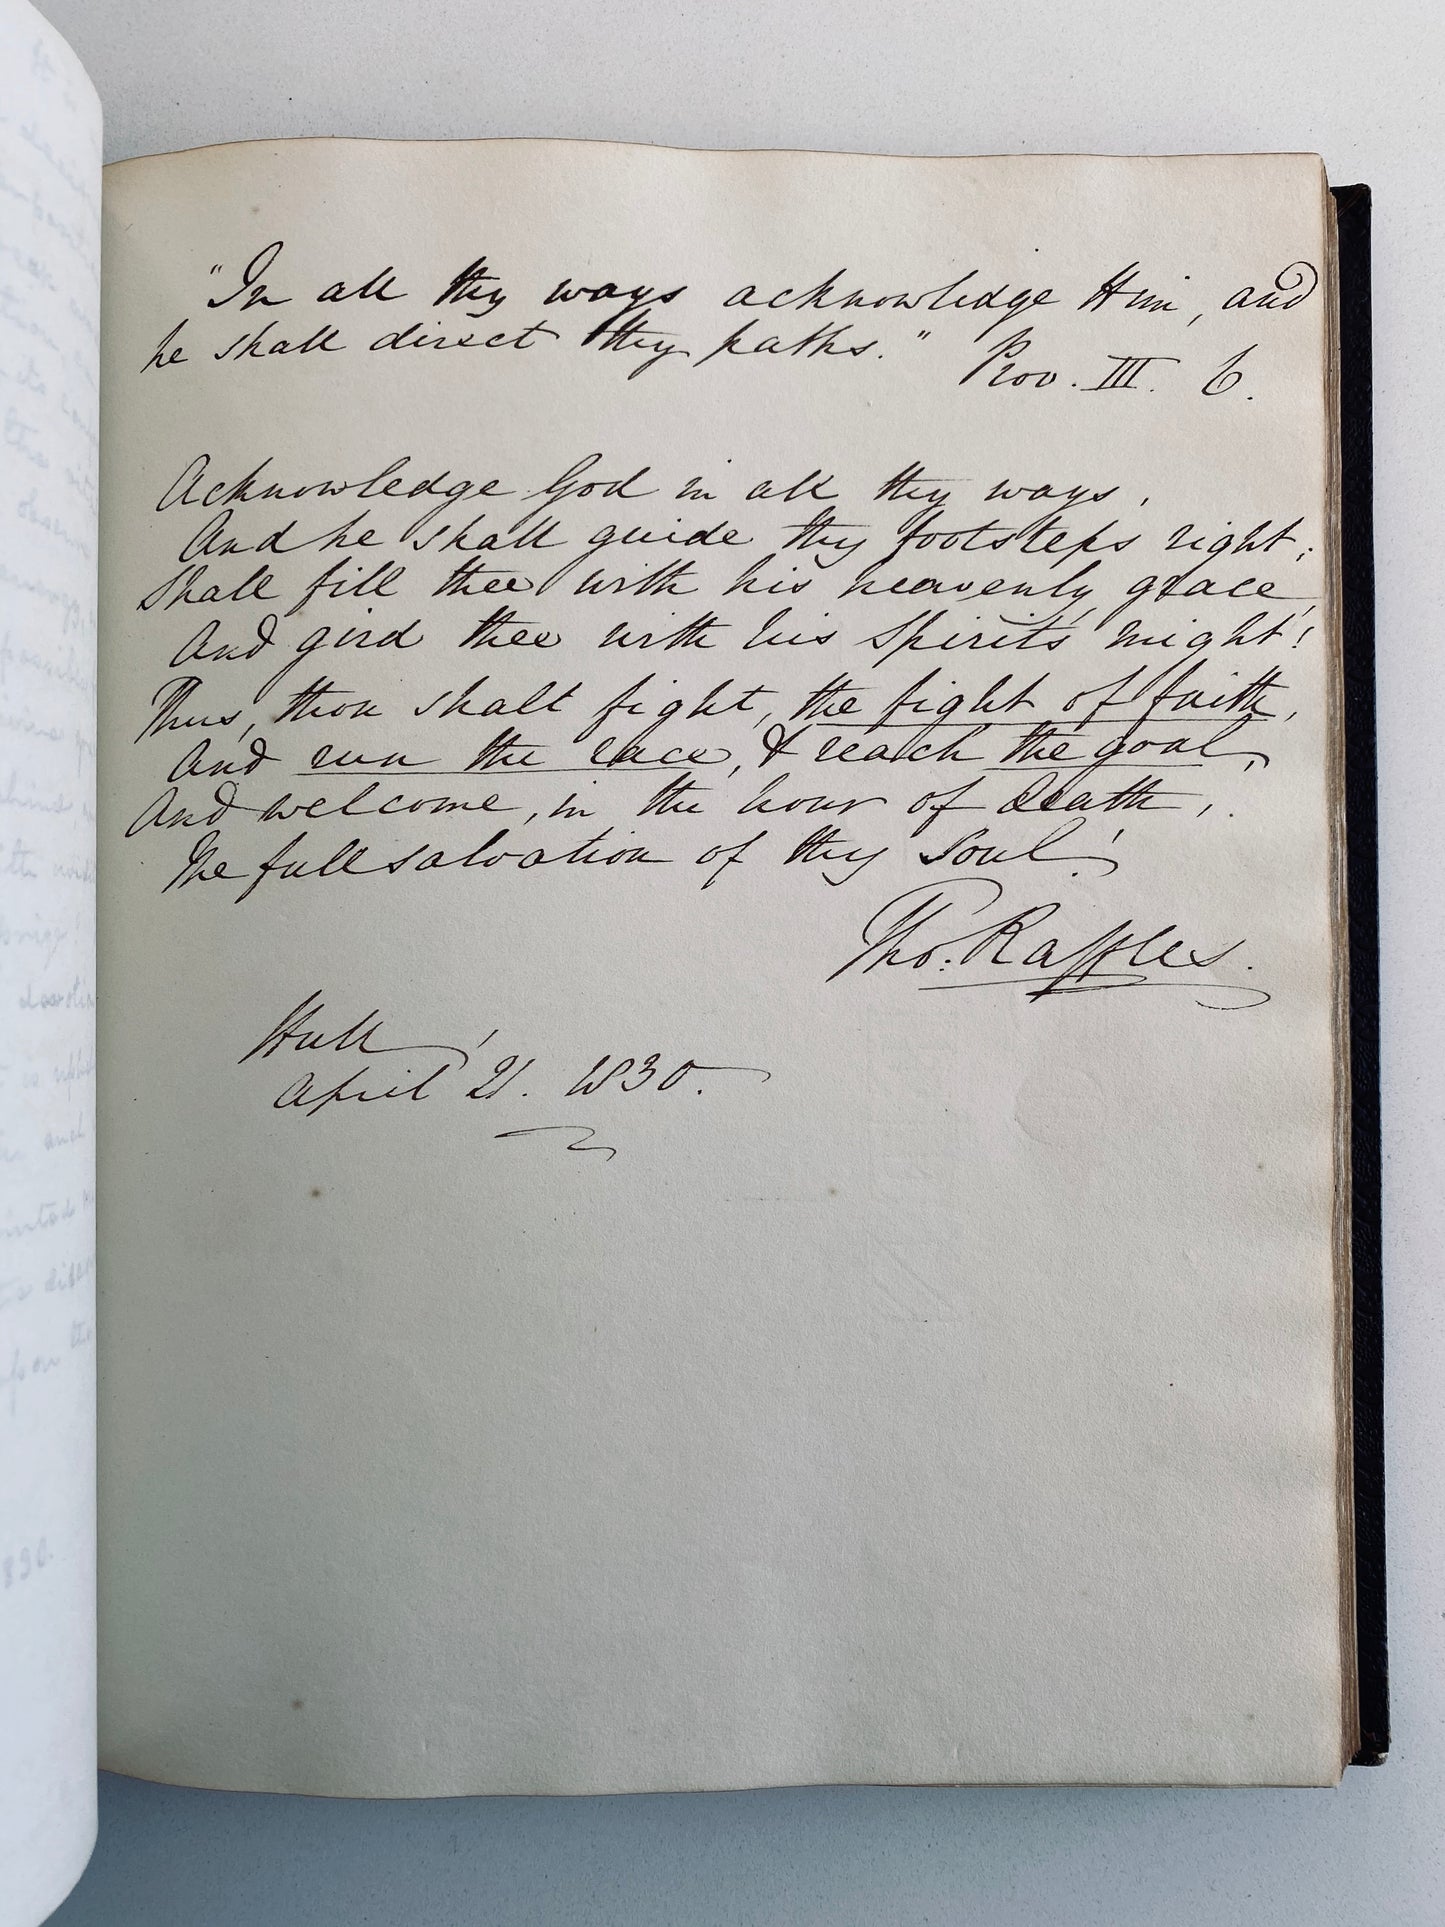 "In all thy ways acknowledge Him, and
he shall direct thy paths." Prov. III. 6.
Acknowledge God in all thy ways,
And he shall guide thy footsteps right;
Shall fill thee with his heavenly grace,
And gird thee with his Spirit's might!
Thus, thou shalt fight, the fight of faith,
And run the race, & reach the goal,
And welcome, in the hour of death,
The full salvation of thy soul!
Tho: Raffles.
Hull,
April 21. 1830.